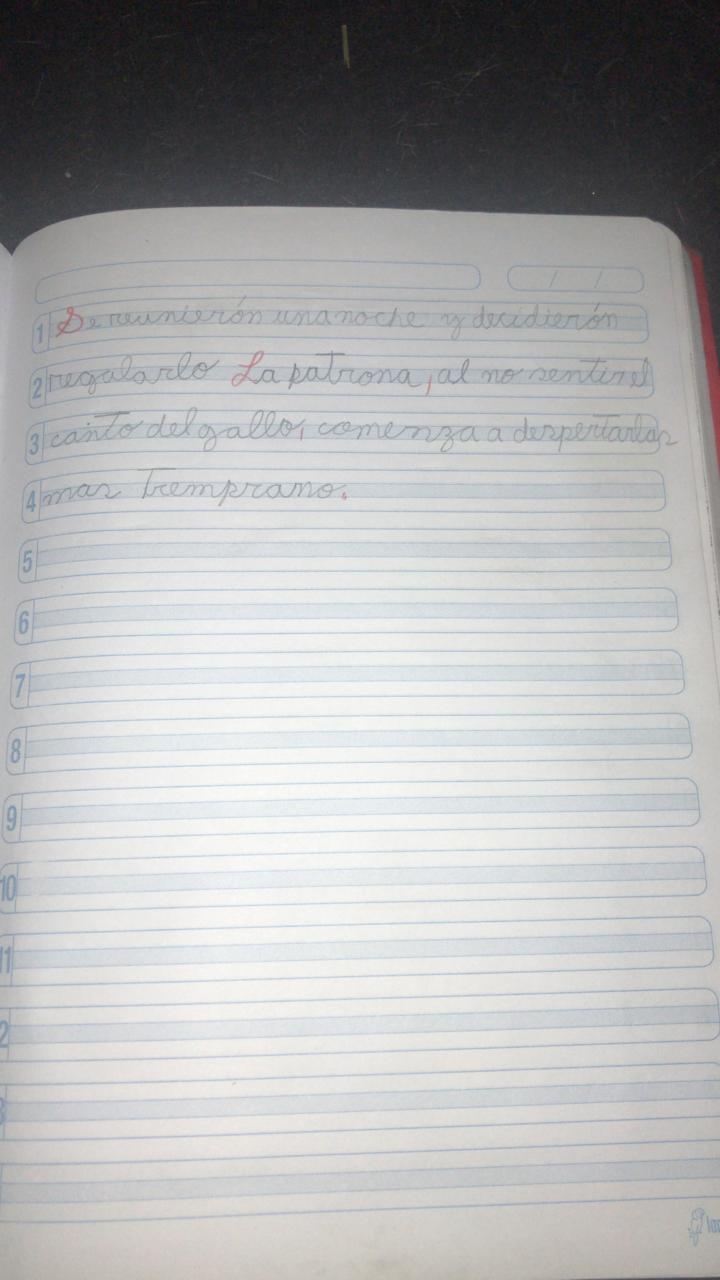 / /
1 Se reunierón una noche y decidierón
2 regalarlo La patrona, al no sentir el
3 canto del gallo, comenza a despertarlas
4 mas tremprano.
5
6
7
8
9
10
11
2
3